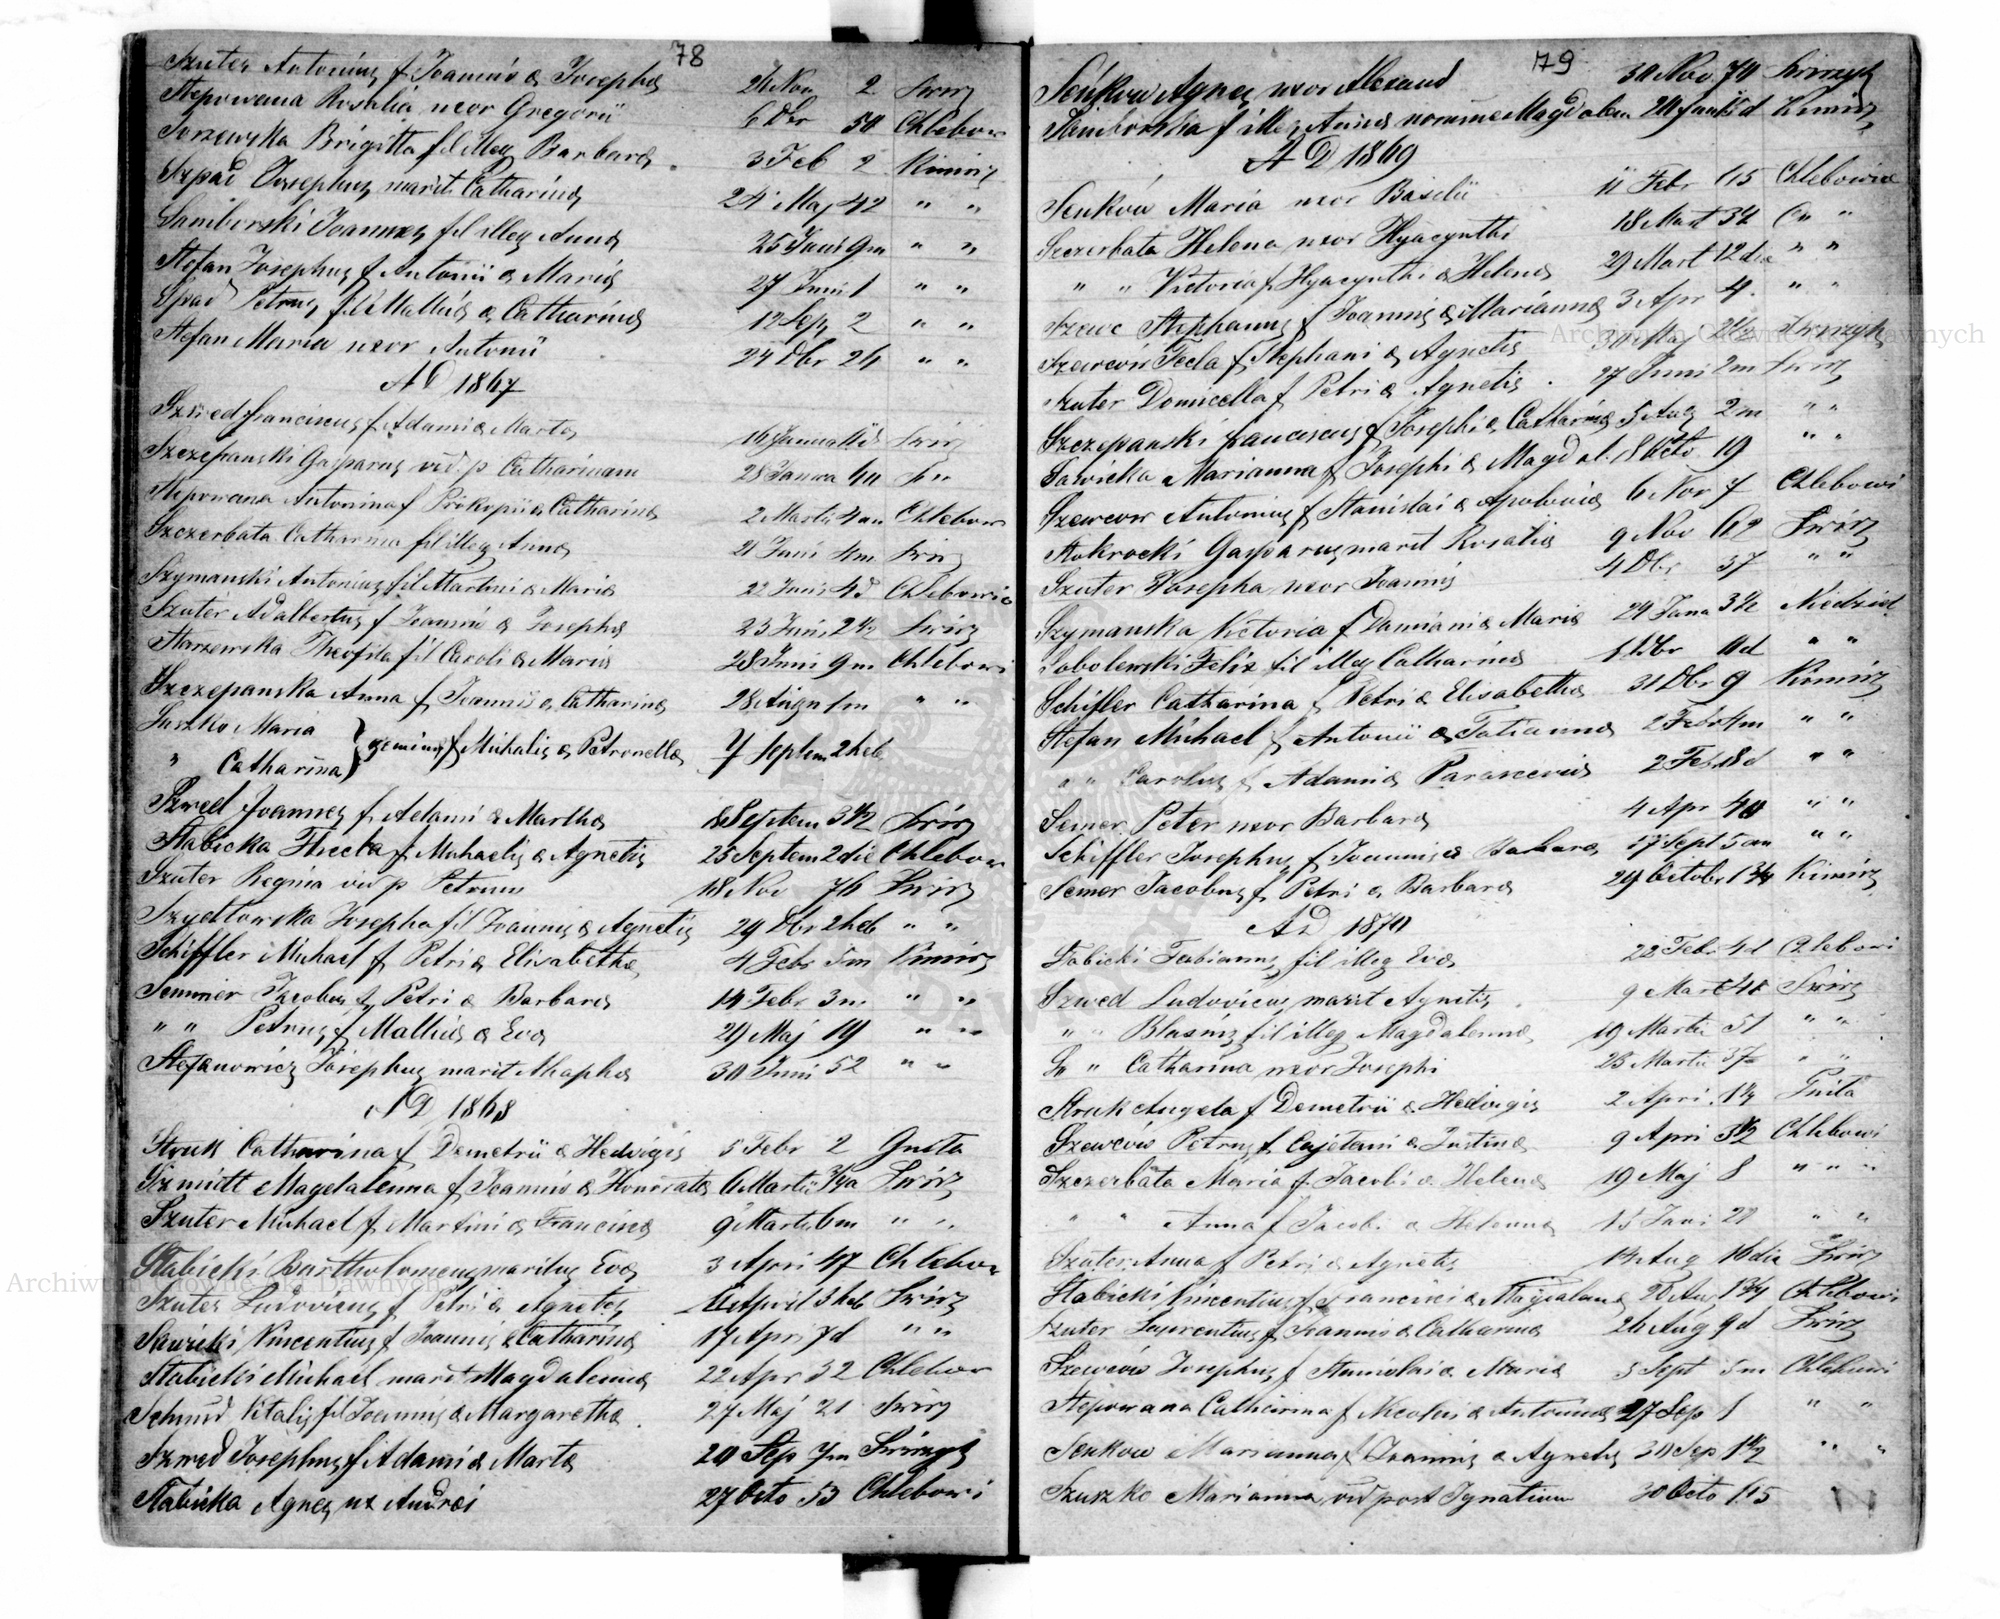 78
Szuter Antonius f Joannis & Josepha 26 Nov 2 Swirz
Stepowana Rosalia uxor Gregorii 6 Dbr 50 Chlebow
Brigitta fil illeg Barbara 3 Feb 2 Kimirz
Szpad Josephus marit Catharina 24 Maj 42 " "
Samborski Joannes fil illeg Anna 25 Junii 9m " "
Stefan Josephus f Antonii & Maria 27 Junii 1 " "
Spad Petrus fil Mathias & Catharina 12 Sep 2 " "
Stefan Maria uxor Antonii 24 Dbr 26 " "
AD 1867
Szwed Franciscus f Adami & Marta 16 Janua Swirz
Szczepanski Gasparus vid. p Catharinam 28 Janua 60
Stepowana Antonina f Prokopii & Catharina 2 Martii Chlebow
Szczerbata Catharina fil illeg Anna 21 Junii 4m Swirz
Szymanski Antonius fil Martini & Maria 22 Junii 4d Chlebowic
Szuter Adalbertus f Joannis & Josepha 23 Junii 2½ Swirz
Starzewska Theofila fil Caroli & Maria 28 Junii 9m Chlebowi
Szczepanska Anna f Joannis & Catharina 28 Augu 1m " "
Suszko Maria
" Catharina } gemina f Michalis & Petronella 7 Septem 2 heb
Szwed Joannes f Adami & Martha Septem 3½ Swirz
Stabicka Thecla f Michaelis & Agnetis 23 Septem 2 die Chlebow
Szuter Regina vid p Petrum 18 Nov 76 Swirz
Szydlowska Josepha fil Joannis & Agnetis 29 Dbr 2 heb " "
Schiffler Michael f Petri & Elisabetha 4 Febr 5m Kimirz
Semmer Jacobus f Petri & Barbara 14 Febr 3m " "
" " Petrus f Mathias & Eva 29 Maj 19 " "
Stefanowicz Josephus marit Ahapha 30 Junii 52 " "
AD 1868
Struk Catharina f Demetrii & Hedvigis 5 Febr 2 Gnita
Szmidt Magdalenna f Joannis & Honorata Martii Swirz
Szuter Michael f Martini & Francina 9 Martii 6m " "
Stabicki Bartholomeus maritus Eva 3 Apri 47 Chlebow
Szuter Ludovicus f Petri & Agnetis April 3 heb Swirz
Sawicki Vincentius f Joannis & Catharina 17 Apri 7d " "
Stabicki Michael marit Magdalenna 22 Apr 32 Chlebow
Schmid Vitalis fil Joannis & Margaretha 27 Maj 21 Swirz
Szwed Josephus f Adami & Marta 20 Sep 7m
Stabicka Agnes ux Andrei 27 Octo 53 Chlebowi
79
Senkow Agnes uxor Alexand 30 Nov 70
Samborska f illeg Anna nomine Magdalen Kimirz
AD 1869
Senkow Maria uxor Basilii 11 Febr 65 Chlebowice
Szczerbata Helena uxor Hyacynthi 18 Mart 32 " "
" " Victoria f Hyacynthi & Helena 29 Mart 12 die " "
Szewc Stephanus f Joannis & Marianna 3 Apr 4. " "
Szewcow Tecla f Stephani & Agnetis
Szuter Domicella f Petri & Agnetis . 27 Junii 2m Swirz
Szczepanski Franciscus f Josephi & Catharina 5 Aug 2m " "
Sawicka Marianna f Josephi & Magdal. 18 Octo 19 " "
Szewcow Antonius f Stanislai & Apolonia 6 Nov 7 Chlebowi
Stokrocki Gasparus marit Rosalia 9 Nov 62 Swirz
Szuter Josepha uxor Joannis 4 Dbr 37 " "
Szymanska Victoria f Damiani & Maria 24 Janu 3½ Niedziel
Sobolewski Felix fil illeg Catharina 1 Dbr " "
Schifler Catharina f Petri & Elisabetha 31 Dbr 9 Kimirz
Stefan Michael f Antonii & Tatianna 2 Febr 4m " "
" " Carolus f Adami & Parascevia 2 Feb 18d " "
Semer Peter uxor Barbara 4 Apr 40 " "
Schiffler Josephus f Joannis & Barbara 17 Sept 5m " "
Semer Jacobus f Petri & Barbara 29 Octobr 1¾ Kimirz
AD 1870
Stabicki Fabianus fil illeg Eva 22 Febr 4d Chlebowi
Szwed Ludovicus marit Agnetis 9 Mart 48 Swirz
" " Blasius fil illeg Magdalenna 19 Martii 51 " "
" Catharina uxor Josephi 23 Martii 37 " "
Struk Angela f Demetrii & Hedvigis 2 Apri. 1½ Gnita
Szewcow Petrus f Cajetani & Justina 9 Apri 3½ Chlebowi
Szczerbata Maria f. Jacobi & Helena 19 Maj 8 " " "
" " Anna f Jacobi & Helenna 13 Juni 22 " "
Szuter Anna f Petri & Agnetis 14 Aug 16 die Swirz
Stabicki Vincentius f Francisci & Magdalena 20 Au 1¾ Chlebowi
Szuter Laurentius f Joannis & Catharina 26 Aug 9d Swirz
Szewcow Josephus f Stanislai & Maria 5 Sept 5m Chlebowi
Stepowana Catharina f Nicolai & Antonina 27 Sep 1 " "
Senkow Marianna f Joannis & Agnetis 30 Sep 1½ " "
Szuszko Marianna vid post Ignatium 30 Octo 65
Archiwum Główne Akt Dawnych
Archiwum Główne Akt Dawnych